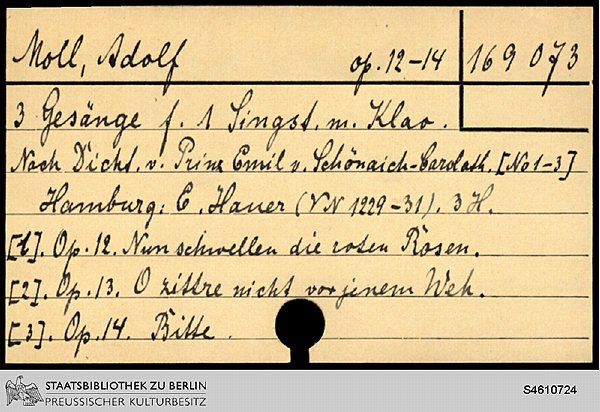 Moll, Adolf op. 12-14 169 073
3 Gesänge f. 1 Singst. m. Klav.
Nach Dicht. v. Prinz Emil v. Schönaich-Carolath. [No 1-3]
Hamburg: E. Hauer (VN 1229-31). 3 H.
[1]. Op. 12. Nun schwellen die roten Rosen.
[2]. Op. 13. O zittre nicht vor jenem Weh.
[3]. Op. 14. Bitte.
STAATSBIBLIOTHEK ZU BERLIN
PREUSSISCHER KULTURBESITZ
S4610724